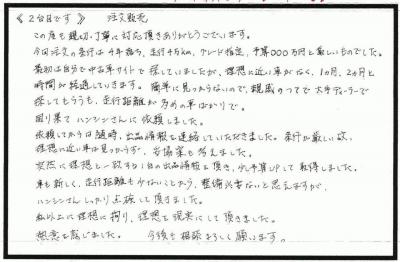 《２台目です》 注文販売
この度も親切、丁寧に対応頂きありがとうございます。
今回注文の条件は4年落ち、走行4万km、グレード指定、予算〇〇〇万円と厳しいものでした。
最初は自分で中古車サイトで探していましたが、理想に近い車がなく、1ヵ月、2ヵ月と
時間が経過していきます。簡単に見つからないので、親戚のつてで大手ディーラーで
探してもらうも、走行距離が多めの車ばかりで。
困り果てハンシンさんに依頼しました。
依頼してからは随時、出品情報を連絡していただきました。条件が厳しい故、
理想に近い車は見つからず、妥協案も考えました。
突然に理想と一致する1台の出品情報を頂き、少し予算UPして取得しました。
車も新しく、走行距離も少ないことから、整備必要ないと思えますが、
ハンシンさんしっかり点検して頂きました。
私以上に理想に拘り、理想を現実にして頂きました。
熱意を感じました。 今後も相談よろしく願います。